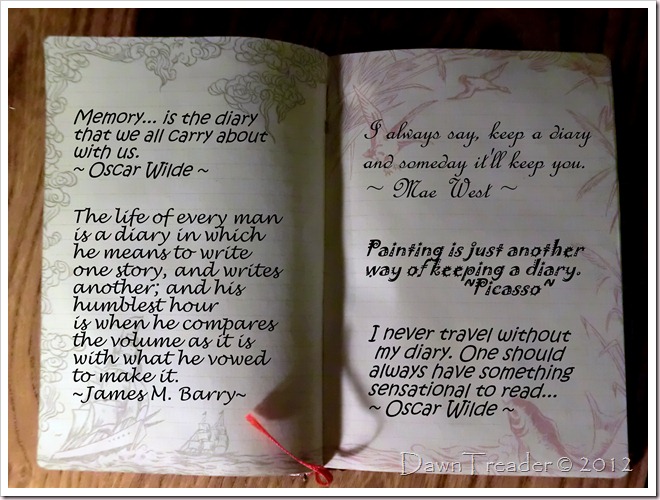 Memory... is the diary
that we all carry about
with us.
~ Oscar Wilde ~
The life of every man
is a diary in which
he means to write
one story, and writes
another; and his
humblest hour
is when he compares
the volume as it is
with what he vowed
to make it.
~James M. Barry~
I always say, keep a diary
and someday it'll keep you.
~ Mae West ~
Painting is just another
way of keeping a diary.
~Picasso~
I never travel without
my diary. One should
always have something
sensational to read...
~ Oscar Wilde ~
DawnTreader © 2012